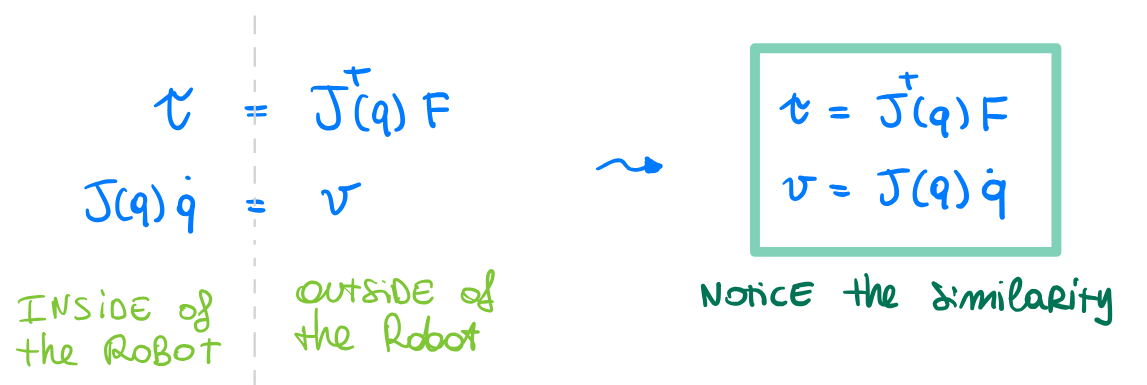 τ = Jᵀ(q) F
J(q) q̇ = v
INSIDE of
the ROBOT
OUTSIDE of
the Robot
τ = Jᵀ(q) F
v = J(q) q̇
NOTICE the similaRity